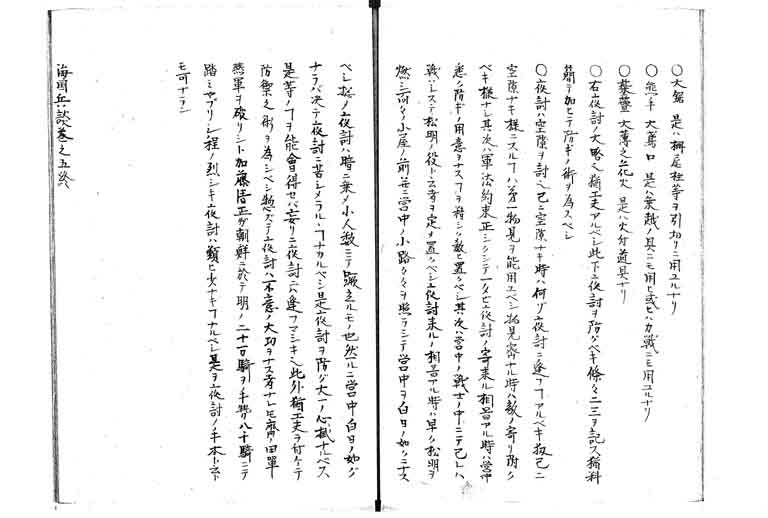 ○大鋸 是ハ柵尾柱等ヲ引切リニ用ユルナリ
○熊手 大鳶口 是ハ乗越ノ具ニモ用ヒ或ヒハカ戦ニモ用ユルナリ
○ 大薄之花火 是ハ火付道具ナリ
○右夜討ノ大略也猶工夫アルベシ此下ニ夜討ヲ防グベキ條々二三ヲ記ス猶料
簡ヲ加ヒテ防ギノ術ヲ為スベシ
○夜討ハ空隙ヲ討也己ニ空隙ナキ時ハ何ゾ夜討ニ逢フフアルベキ扨己ニ
空隙ナキ様ニスルフハ第一物見ヲ能用ユベシ物見密ナル時ハ敵ノ寄リ附ク
ベキ様ナシ其次ハ軍法約束正シクシテ一タビ夜討ノ寄来ル相圖アル時ハ営中
悉ク防ギノ用意ヲナスフヲ精シク教ヒ置クベシ其次ハ営中ノ戦士ノ中ニテ己レハ
戦ハズシテ松明ノ役トスル者ヲ定メ置クベシ夜討来ルノ相圖アル時ハ早ク松明ヲ
燃シテ向々小屋ノ前並ニ営中ノ小路々々ヲ照ラシテ営中ヲ白日ノ如クニナス
ベシ惣ノ夜討ハ暗ニ乗メ小人数ニテ蹴立ルモノ也然ルニ営中白日ノ如グ
ナラバ決テ夜討ニ苦シメラルヽフナカルベシ是夜討ヲ防グ大一ノ心拭ナルベス
是等ノフヲ能會得セバ妄リニ夜討ニハ逢フマジキ也此外猶工夫ヲ付ケテ
防禦之術ヲ為シベシ惣ベテ夜討ハ不意ノ大功ヲナス者ナレヒ齊ノ田單
燕軍ヲ破リシト加藤清正ガ朝鮮ニ於テ明ノ二十万騎ヲ手勢八十騎ニテ
踏ミヤブリシ程ノ烈シキ夜討ハ類ヒ少ナキフナルベシ是ヲ夜討ノ手本トスト
モ可ナラン
海國兵談巻之五終